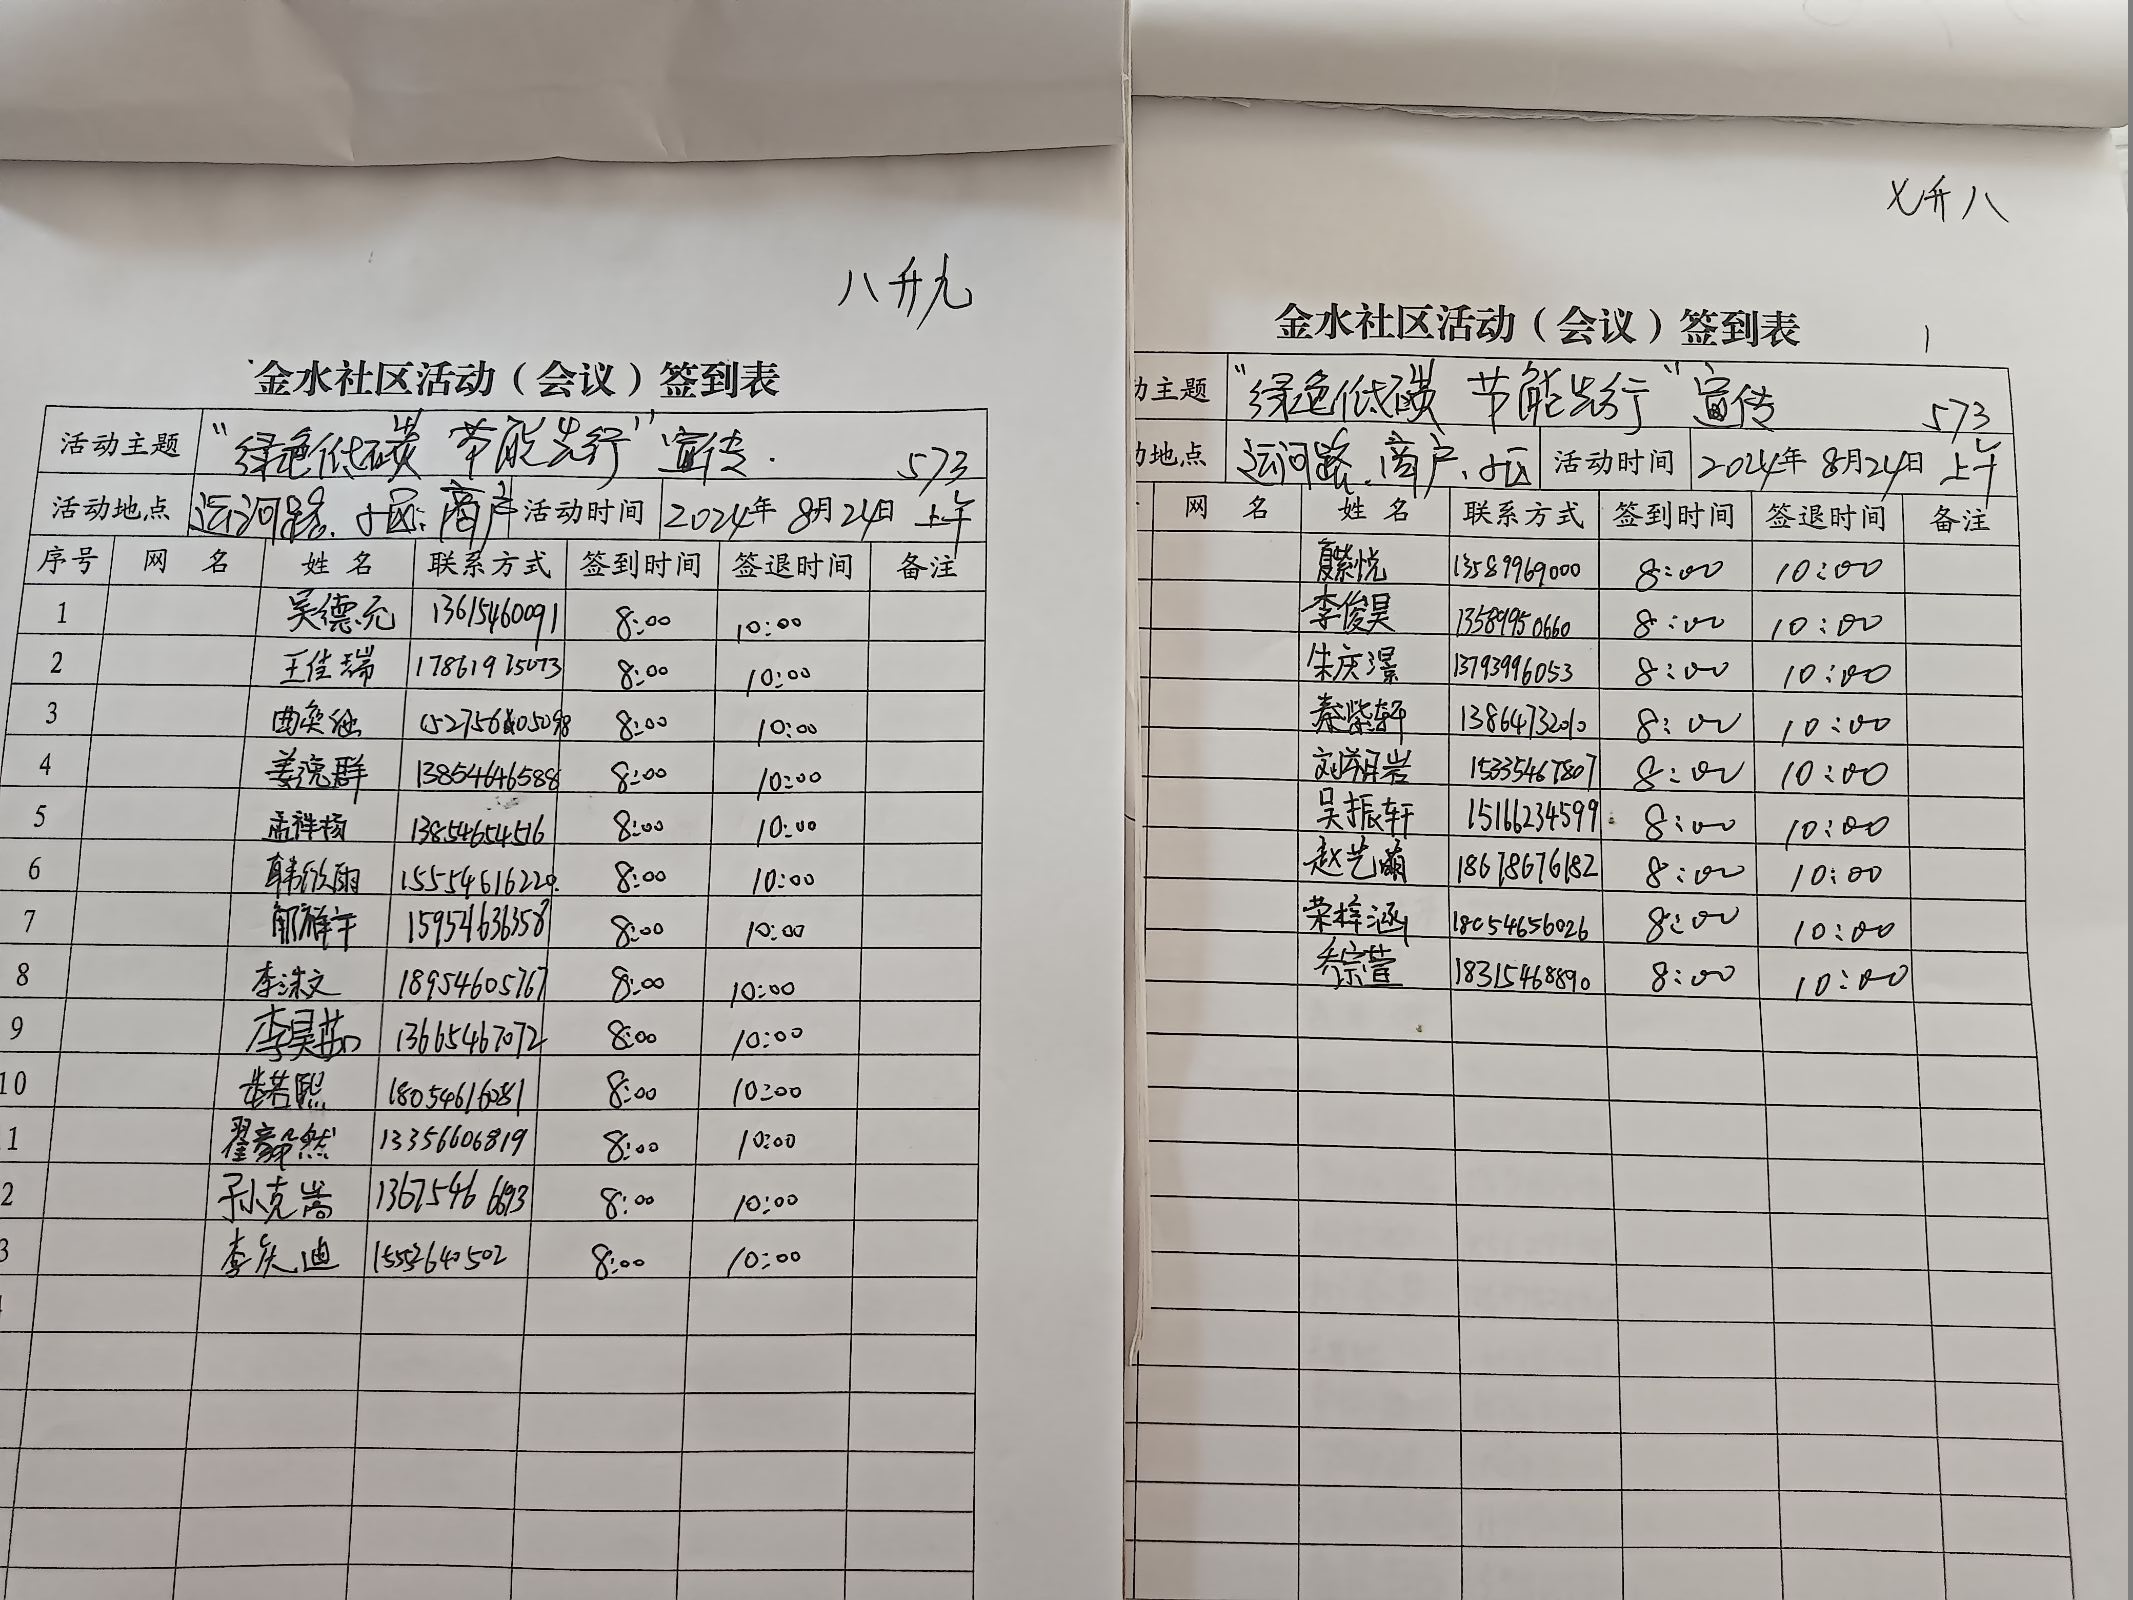 八升九
金水社区活动（会议）签到表
活动主题 “绿色低碳 节能先行”宣传. 573
活动地点 运河路、小区、商户 活动时间 2024年8月24日 上午
序号 网 名 姓 名 联系方式 签到时间 签退时间 备注
1 吴德元 13615460091 8:00 10:00
2 王佳瑞 17861975073 8:00 10:00
3 8:00 10:00
4 13854646588 8:00 10:00
5 孟祥杨 13854654516 8:00 10:00
6 韩欣雨 15554616220 8:00 10:00
7 15954636358 8:00 10:00
8 李沫文 18954605767 8:00 10:00
9 李昊茹 13665467072 8:00 10:00
10 若熙 8:00 10:00
1 翟豪然 13356606819 8:00 10:00
2 孙克嵩 8:00 10:00
3 李庆迪 15552640502 8:00 10:00
七升八
金水社区活动（会议）签到表
动主题 “绿色低碳 节能先行”宣传 573
动地点 运河路、商户、小区 活动时间 2024年8月24日 上午
网 名 姓 名 联系方式 签到时间 签退时间 备注
夏紫悦 13589969000 8:00 10:00
李俊昊 13589950660 8:00 10:00
朱庆澋 13793996053 8:00 10:00
秦紫轩 13864732010 8:00 10:00
15335467807 8:00 10:00
吴振轩 15166234599 8:00 10:00
赵艺萌 18678676182 8:00 10:00
荣梓涵 18054656026 8:00 10:00
乔宗萱 18315468890 8:00 10:00